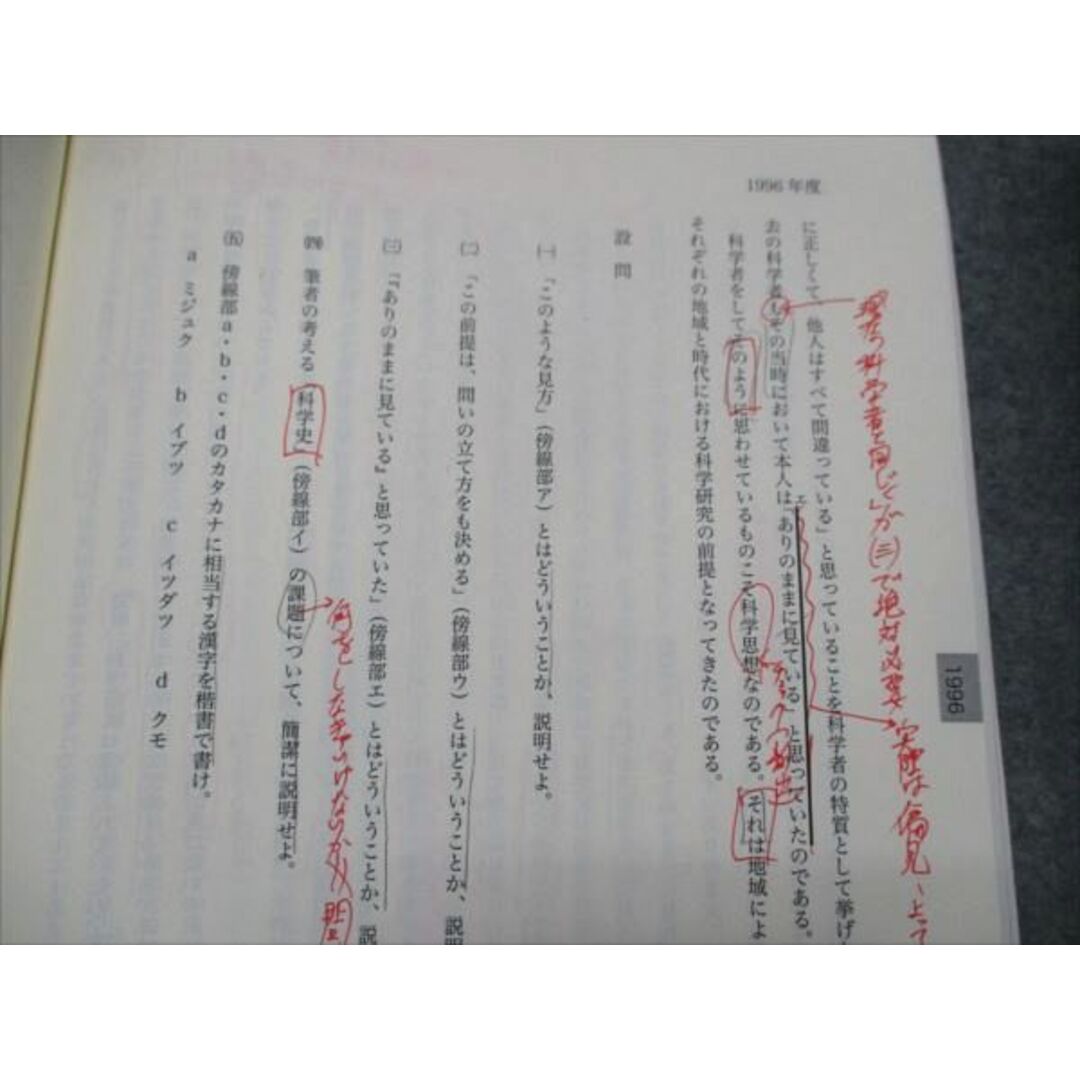 1996年度
に正しくて、他人はすべて間違っている」と思っていることを科学者の特質として挙げ
去の科学者もその当時において本人は「ありのままに見ている」と思っていたのである。
エ
科学者をしてそのように思わせているものこそ科学思想なのである。それは地域によ
それぞれの地域と時代における科学研究の前提となってきたのである。
設問
㈠ 「このような見方」(傍線部ア)とはどういうことか、説明せよ。
㈡ 「この前提は、問いの立て方をも決める」(傍線部ウ)とはどういうことか、説明
㈢ 「『ありのままに見ている』と思っていた」(傍線部エ)とはどういうことか、説
㈣ 筆者の考える「科学史」(傍線部イ)の課題について、簡潔に説明せよ。
㈤ 傍線部a・b・c・dのカタカナに相当する漢字を楷書で書け。
a ミジュク b イブツ c イツダツ d クモ
1996
科学者と同じく」が(三)で絶対必要
実際は偏見
何をしなきゃいけないのか